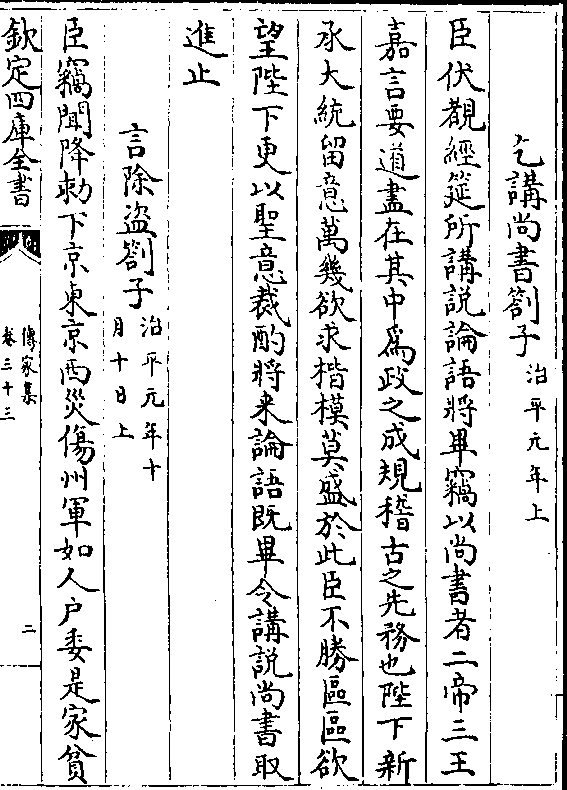 乞講尚書劄子治平元年上
臣伏覩經筵所講說論語將畢竊以尚書者二帝三王
嘉言要道盡在其中為政之成規稽古之先務也陛下新
承大統留意萬幾欲求楷模莫盛於此臣不勝區區欲
望陛下更以聖意裁酌將来論語既畢令講說尚書取
進止
言除盜劄子治平元年十
月十日上
臣竊聞降勑下京東京西災傷州軍如人户委是家貧
欽定四庫全書
傳家集
卷三十三
二